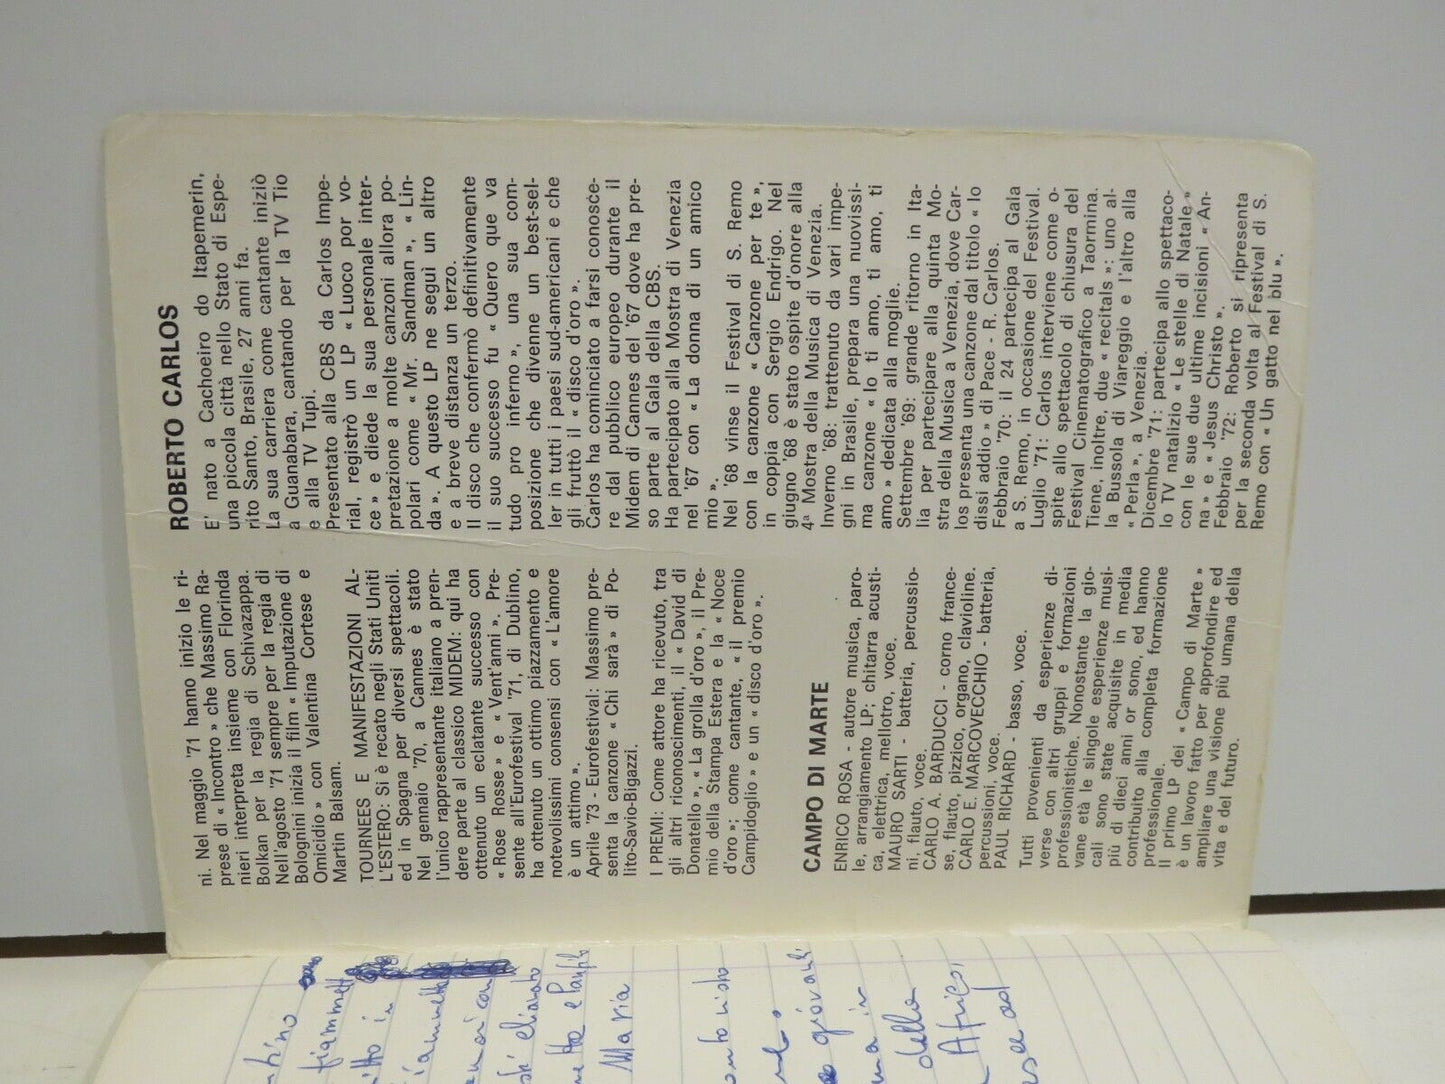 ni. Nel maggio '71 hanno inizio le ri-
prese di « Incontro » che Massimo Ra-
nieri interpreta insieme con Florinda
Bolkan per la regia di Schivazappa.
Nell'agosto '71 sempre per la regia di
Bolognini inizia il film « Imputazione di
Omicidio » con Valentina Cortese e
Martin Balsam.
TOURNEES E MANIFESTAZIONI AL-
L'ESTERO: Si è recato negli Stati Uniti
ed in Spagna per diversi spettacoli.
Nel gennaio '70, a Cannes è stato
l'unico rappresentante italiano a pren-
dere parte al classico MIDEM: qui ha
ottenuto un eclatante successo con
« Rose Rosse » e « Vent'anni ». Pre-
sente all'Eurofestival '71, di Dublino,
ha ottenuto un ottimo piazzamento e
notevolissimi consensi con « L'amore
è un attimo ».
Aprile '73 - Eurofestival: Massimo pre-
senta la canzone « Chi sarà » di Po-
lito-Savio-Bigazzi.
I PREMI: Come attore ha ricevuto, tra
gli altri riconoscimenti, il « David di
Donatello », « La grolla d'oro », il Pre-
mio della Stampa Estera e la « Noce
d'oro »; come cantante, « il premio
Campidoglio » e un « disco d'oro ».
CAMPO DI MARTE
ENRICO ROSA - autore musica, paro-
le, arrangiamento LP; chitarra acusti-
ca, elettrica, mellotro, voce.
MAURO SARTI - batteria, percussio-
ni, flauto, voce.
CARLO A. BARDUCCI - corno france-
se, flauto, pizzico, organo, clavioline.
CARLO E. MARCOVECCHIO - batteria,
percussioni, voce.
PAUL RICHARD - basso, voce.
Tutti provenienti da esperienze di-
verse con altri gruppi e formazioni
professionistiche. Nonostante la gio-
vane età le singole esperienze musi-
cali sono state acquisite in media
più di dieci anni or sono, ed hanno
contribuito alla completa formazione
professionale.
Il primo LP dei « Campo di Marte »
è un lavoro fatto per approfondire ed
ampliare una visione più umana della
vita e del futuro.
ROBERTO CARLOS
E' nato a Cachoeiro do Itapemerin,
una piccola città nello Stato di Espe-
rito Santo, Brasile, 27 anni fa.
La sua carriera come cantante iniziò
a Guanabara, cantando per la TV Tio
e alla TV Tupi.
Presentato alla CBS da Carlos Impe-
rial, registrò un LP « Luoco por vo-
ce » e diede la sua personale inter-
pretazione a molte canzoni allora po-
polari come « Mr. Sandman », « Lin-
da ». A questo LP ne seguì un altro
e a breve distanza un terzo.
Il disco che confermò definitivamente
il suo successo fu « Quero que va
tudo pro inferno », una sua com-
posizione che divenne un best-sel-
ler in tutti i paesi sud-americani e che
gli fruttò il « disco d'oro ».
Carlos ha cominciato a farsi conosce-
re dal pubblico europeo durante il
Midem di Cannes del '67 dove ha pre-
so parte al Gala della CBS.
Ha partecipato alla Mostra di Venezia
nel '67 con « La donna di un amico
mio ».
Nel '68 vinse il Festival di S. Remo
con la canzone « Canzone per te »,
in coppia con Sergio Endrigo. Nel
giugno '68 è stato ospite d'onore alla
4ª Mostra della Musica di Venezia.
Inverno '68: trattenuto da vari impe-
gni in Brasile, prepara una nuovissi-
ma canzone « Io ti amo, ti amo, ti
amo » dedicata alla moglie.
Settembre '69: grande ritorno in Ita-
lia per partecipare alla quinta Mo-
stra della Musica a Venezia, dove Car-
los presenta una canzone dal titolo « Io
dissi addio » di Pace - R. Carlos.
Febbraio '70: il 24 partecipa al Gala
a S. Remo, in occasione del Festival.
Luglio '71: Carlos interviene come o-
spite allo spettacolo di chiusura del
Festival Cinematografico a Taormina.
Tiene, inoltre, due « recitals »: uno al-
la Bussola di Viareggio e l'altro alla
« Perla », a Venezia.
Dicembre '71: partecipa allo spettaco-
lo TV natalizio « Le stelle di Natale »
con le sue due ultime incisioni « An-
na » e « Jesus Christo ».
Febbraio '72: Roberto si ripresenta
per la seconda volta al Festival di S.
Remo con « Un gatto nel blu ».
Maria
giovani
in
della